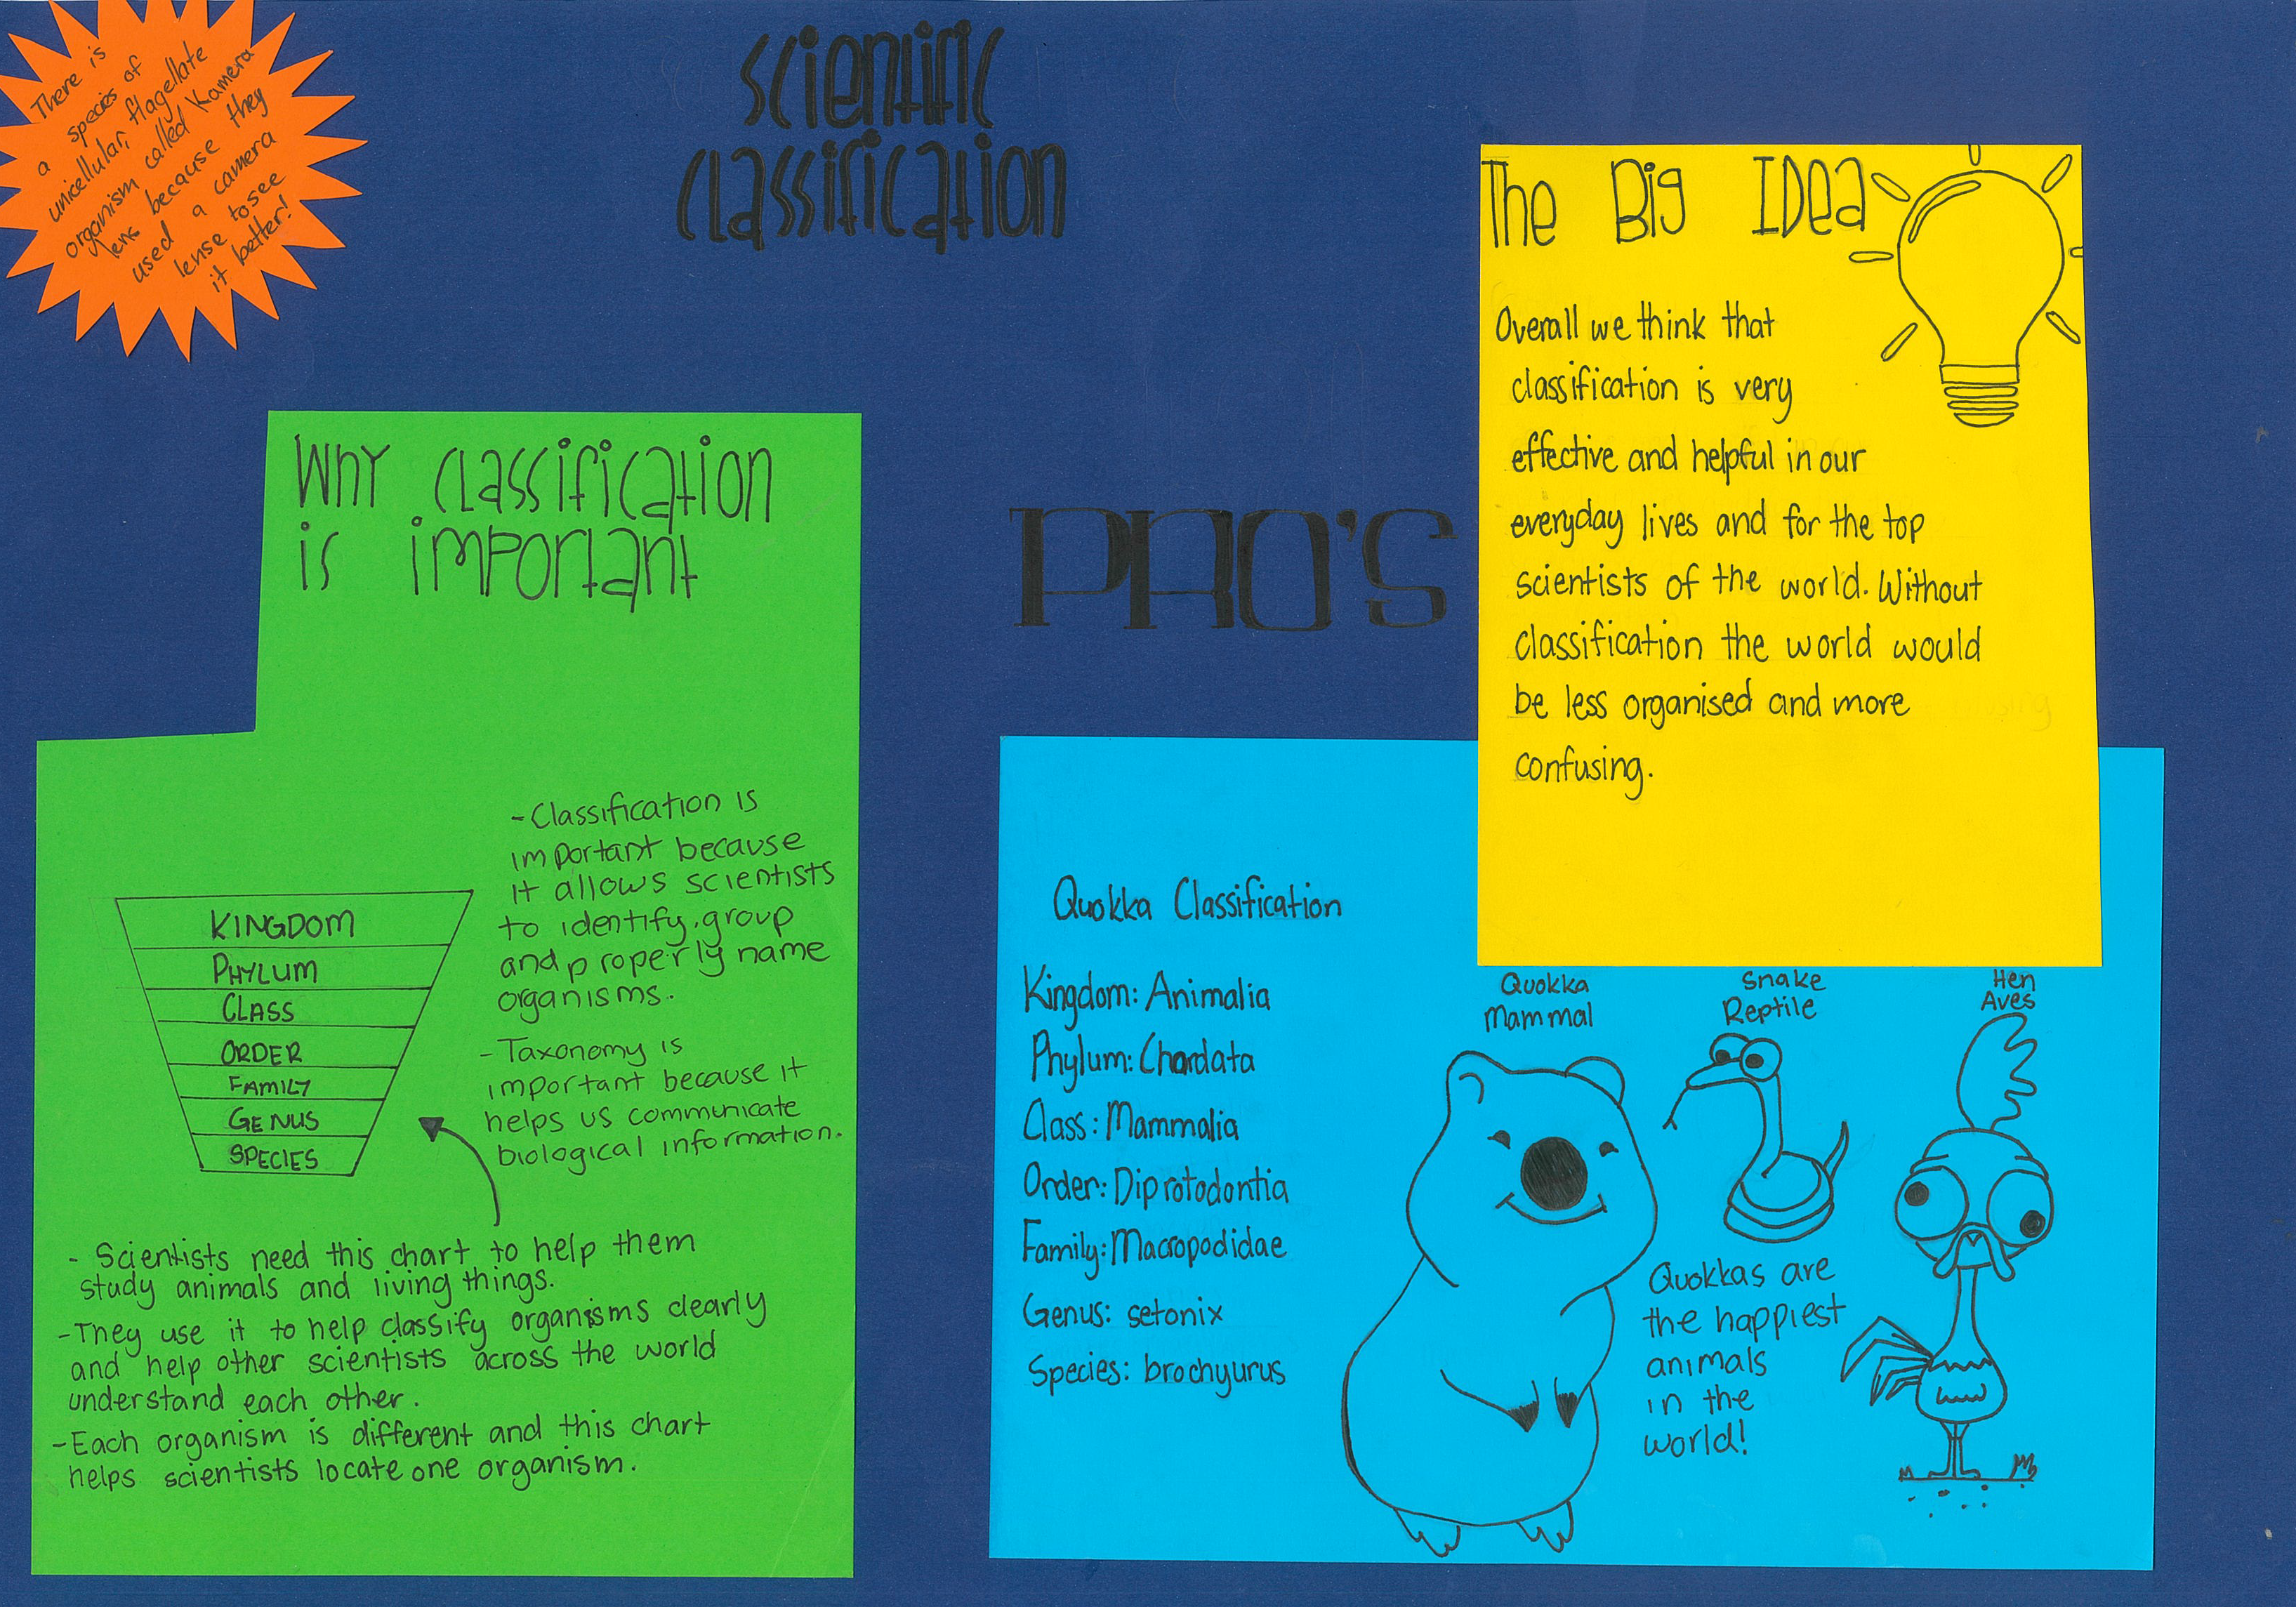 There is
a species of
unicellular, flagellate
organism called Kamera
lens because they
used a camera
lense to see
it better!
Scientific
Classification
Why Classification
is important
- Classification is
important because
it allows scientists
to identify, group
and properly name
organisms.
- Taxonomy is
important because it
helps us communicate
biological information.
KINGDOM
PHYLUM
CLASS
ORDER
FAMILY
GENUS
SPECIES
- Scientists need this chart to help them
study animals and living things.
- They use it to help classify organisms clearly
and help other scientists across the world
understand each other.
- Each organism is different and this chart
helps scientists locate one organism.
PRO'S
The Big IDea
Overall we think that
classification is very
effective and helpful in our
everyday lives and for the top
scientists of the world. Without
classification the world would
be less organised and more
confusing.
Quokka Classification
Kingdom: Animalia
Phylum: Chordata
Class: Mammalia
Order: Diprotodontia
Family: Macropodidae
Genus: setonix
Species: brochyurus
Quokka
Mammal
Snake
Reptile
Hen
Aves
Quokkas are
the happiest
animals
in the
world!